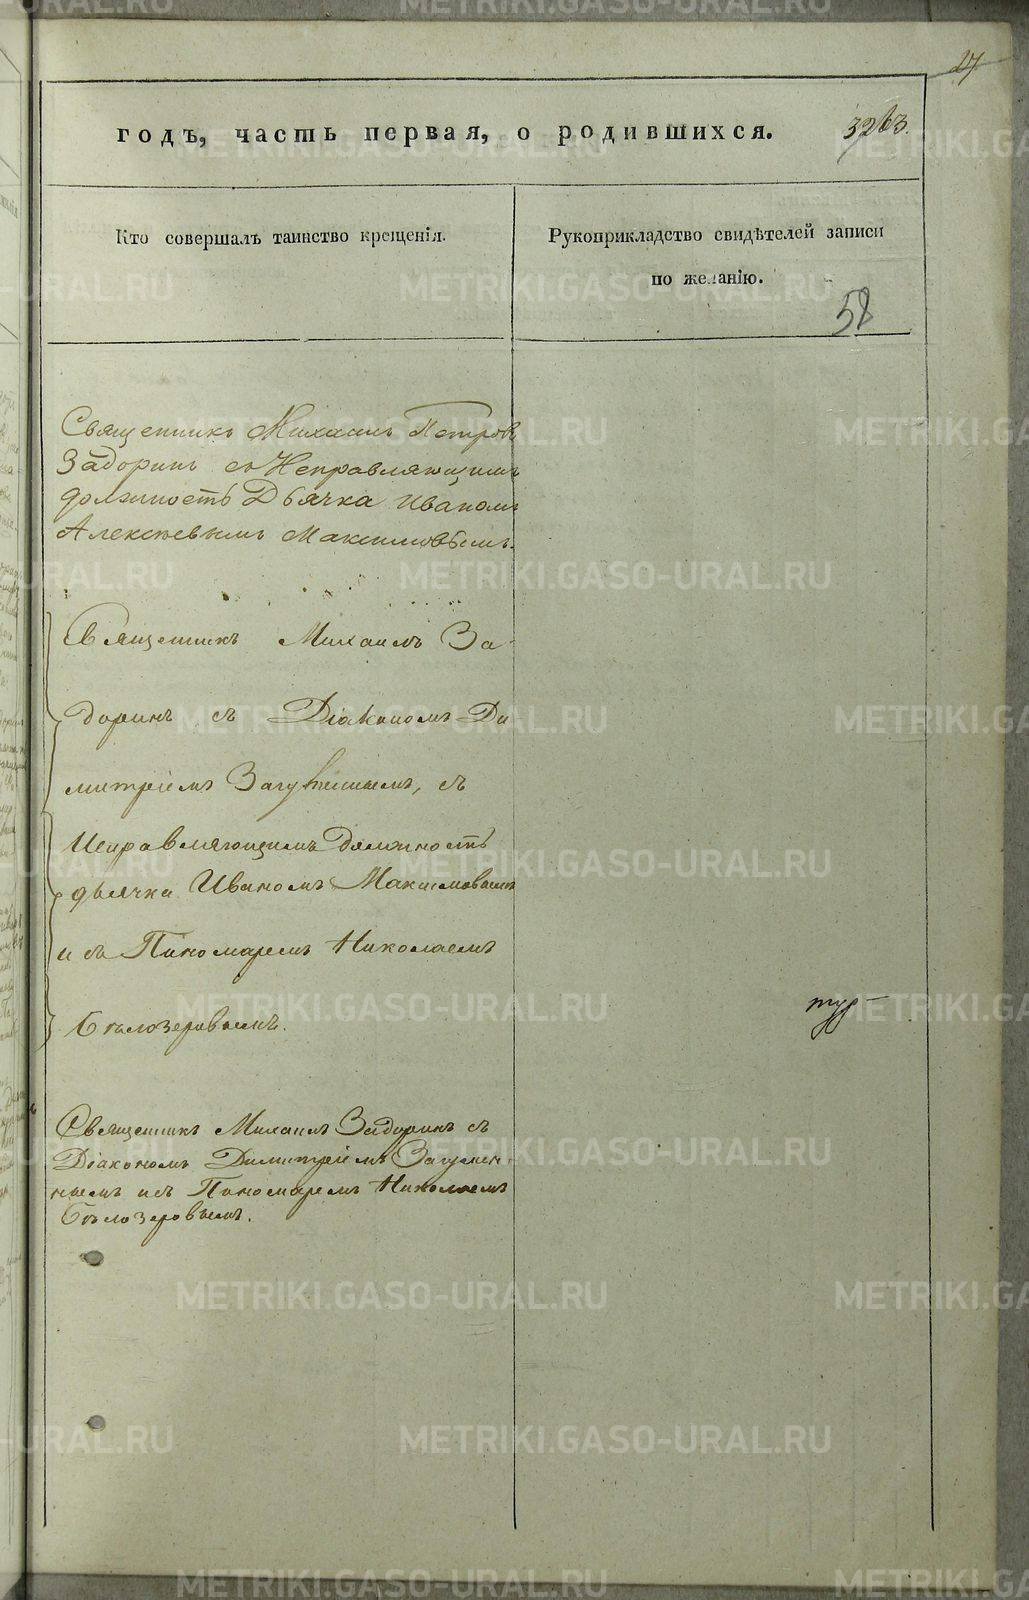 27
годъ, часть первая, о родившихся.
3263.
Кто совершалъ таинство крещенія.
Рукоприкладство свидѣтелей записи
по желанію.
58
Священникъ Михаилъ Петровъ
Задоринъ съ Исправляющимъ
должность Дьячка Иваномъ
Алексѣевымъ Максимовымъ.
Священникъ Михаилъ За-
доринъ съ Діакономъ Ди
митріемъ съ
Исправляющимъ Должность
дьячка Иваномъ Максимовымъ
и съ Пономаремъ Николаемъ
Бѣлозеровымъ.
Священникъ Михаилъ Задоринъ съ
Діакономъ Димитріемъ Загумен-
нымъ и съ Пономаремъ Николаемъ
Бѣлозеровымъ.
METRIKI.GASO-URAL.RU